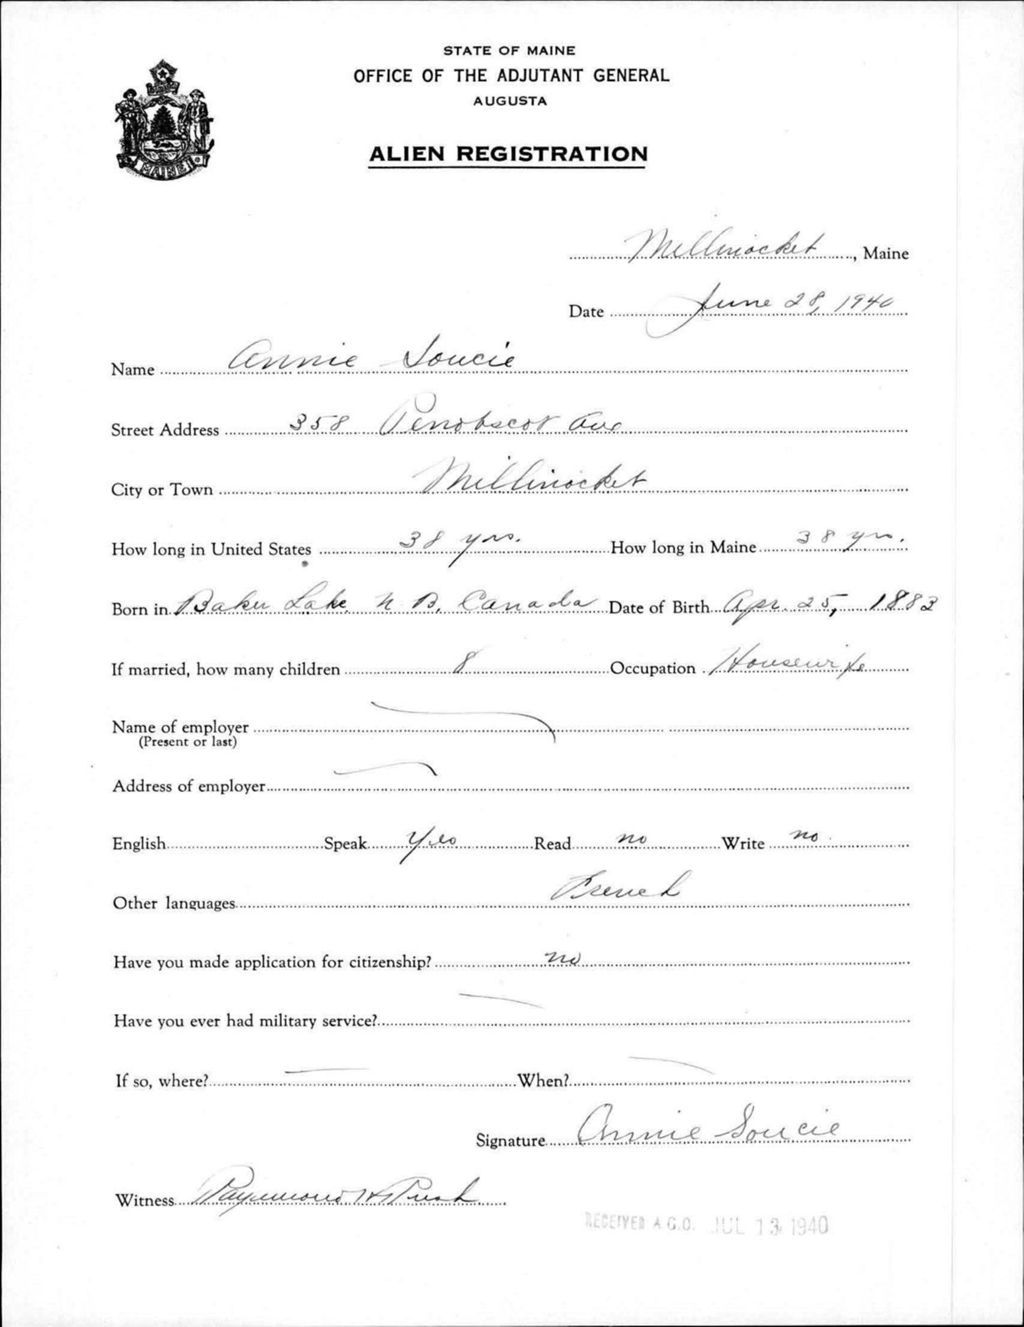 STATE OF MAINE
OFFICE OF THE ADJUTANT GENERAL
AUGUSTA
MAINE
ALIEN REGISTRATION
Millinocket, Maine
Date June 28, 1940
Name Annie Soucie
Street Address 358 Penobscot Ave
City or Town Millinocket
How long in United States 38 yrs. How long in Maine 38 yrs.
Born in Baker Lake N B, Canada Date of Birth Apr. 25, 1883
If married, how many children 8 Occupation Housewife
Name of employer
(Present or last)
Address of employer
English Speak Yes Read no Write no
Other languages French
Have you made application for citizenship? no
Have you ever had military service?
If so, where? When?
Signature Annie Soucie
Witness Raymond H
RECEIVED A.G.O. JUL 13 1940